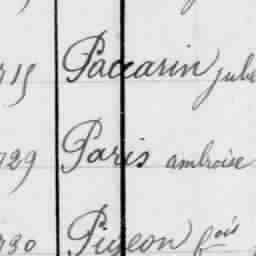 715 Paccarin jule
729 Paris ambroise
730 Pigeon fois